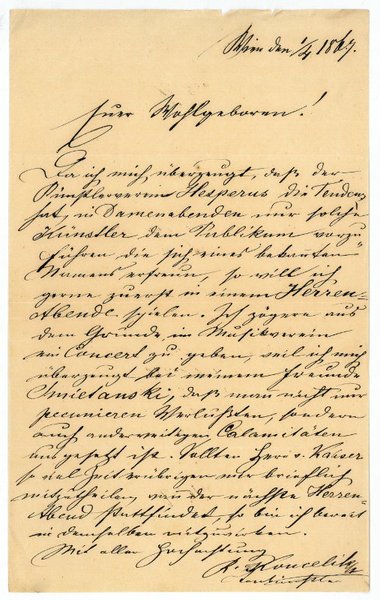 Wien den 1/4 1867.
Euer Wohlgeboren!
Da ich mich überzeugt, daß der
Künstlerverein Hesperus die Tendenz
hat, in Damenabenden nur solche
Künstler dem Publikum vorzu-
führen die sich eines bekannten
Namens erfreun, so will ich
gerne zuerst in einem Herren-
Abende spielen. Ich zögere aus
dem Grunde, im Musikverein
ein Concert zu geben, weil ich mich
überzeugt bei meinem Freunde
Smietanski, daß man nicht nur
pecunieren Verlüsten, sondern
auch anderweitigen Calamitäten
ausgesetzt ist. Sollten Herr v. Kaiser
so viel Zeit erübrigen mir brieflich
mitzutheilen, wan der nächste Herren-
Abend stattfindet, so bin ich bereit
in demselben mitzuwirken.
Mit aller Hochachtung
Tonkünstler